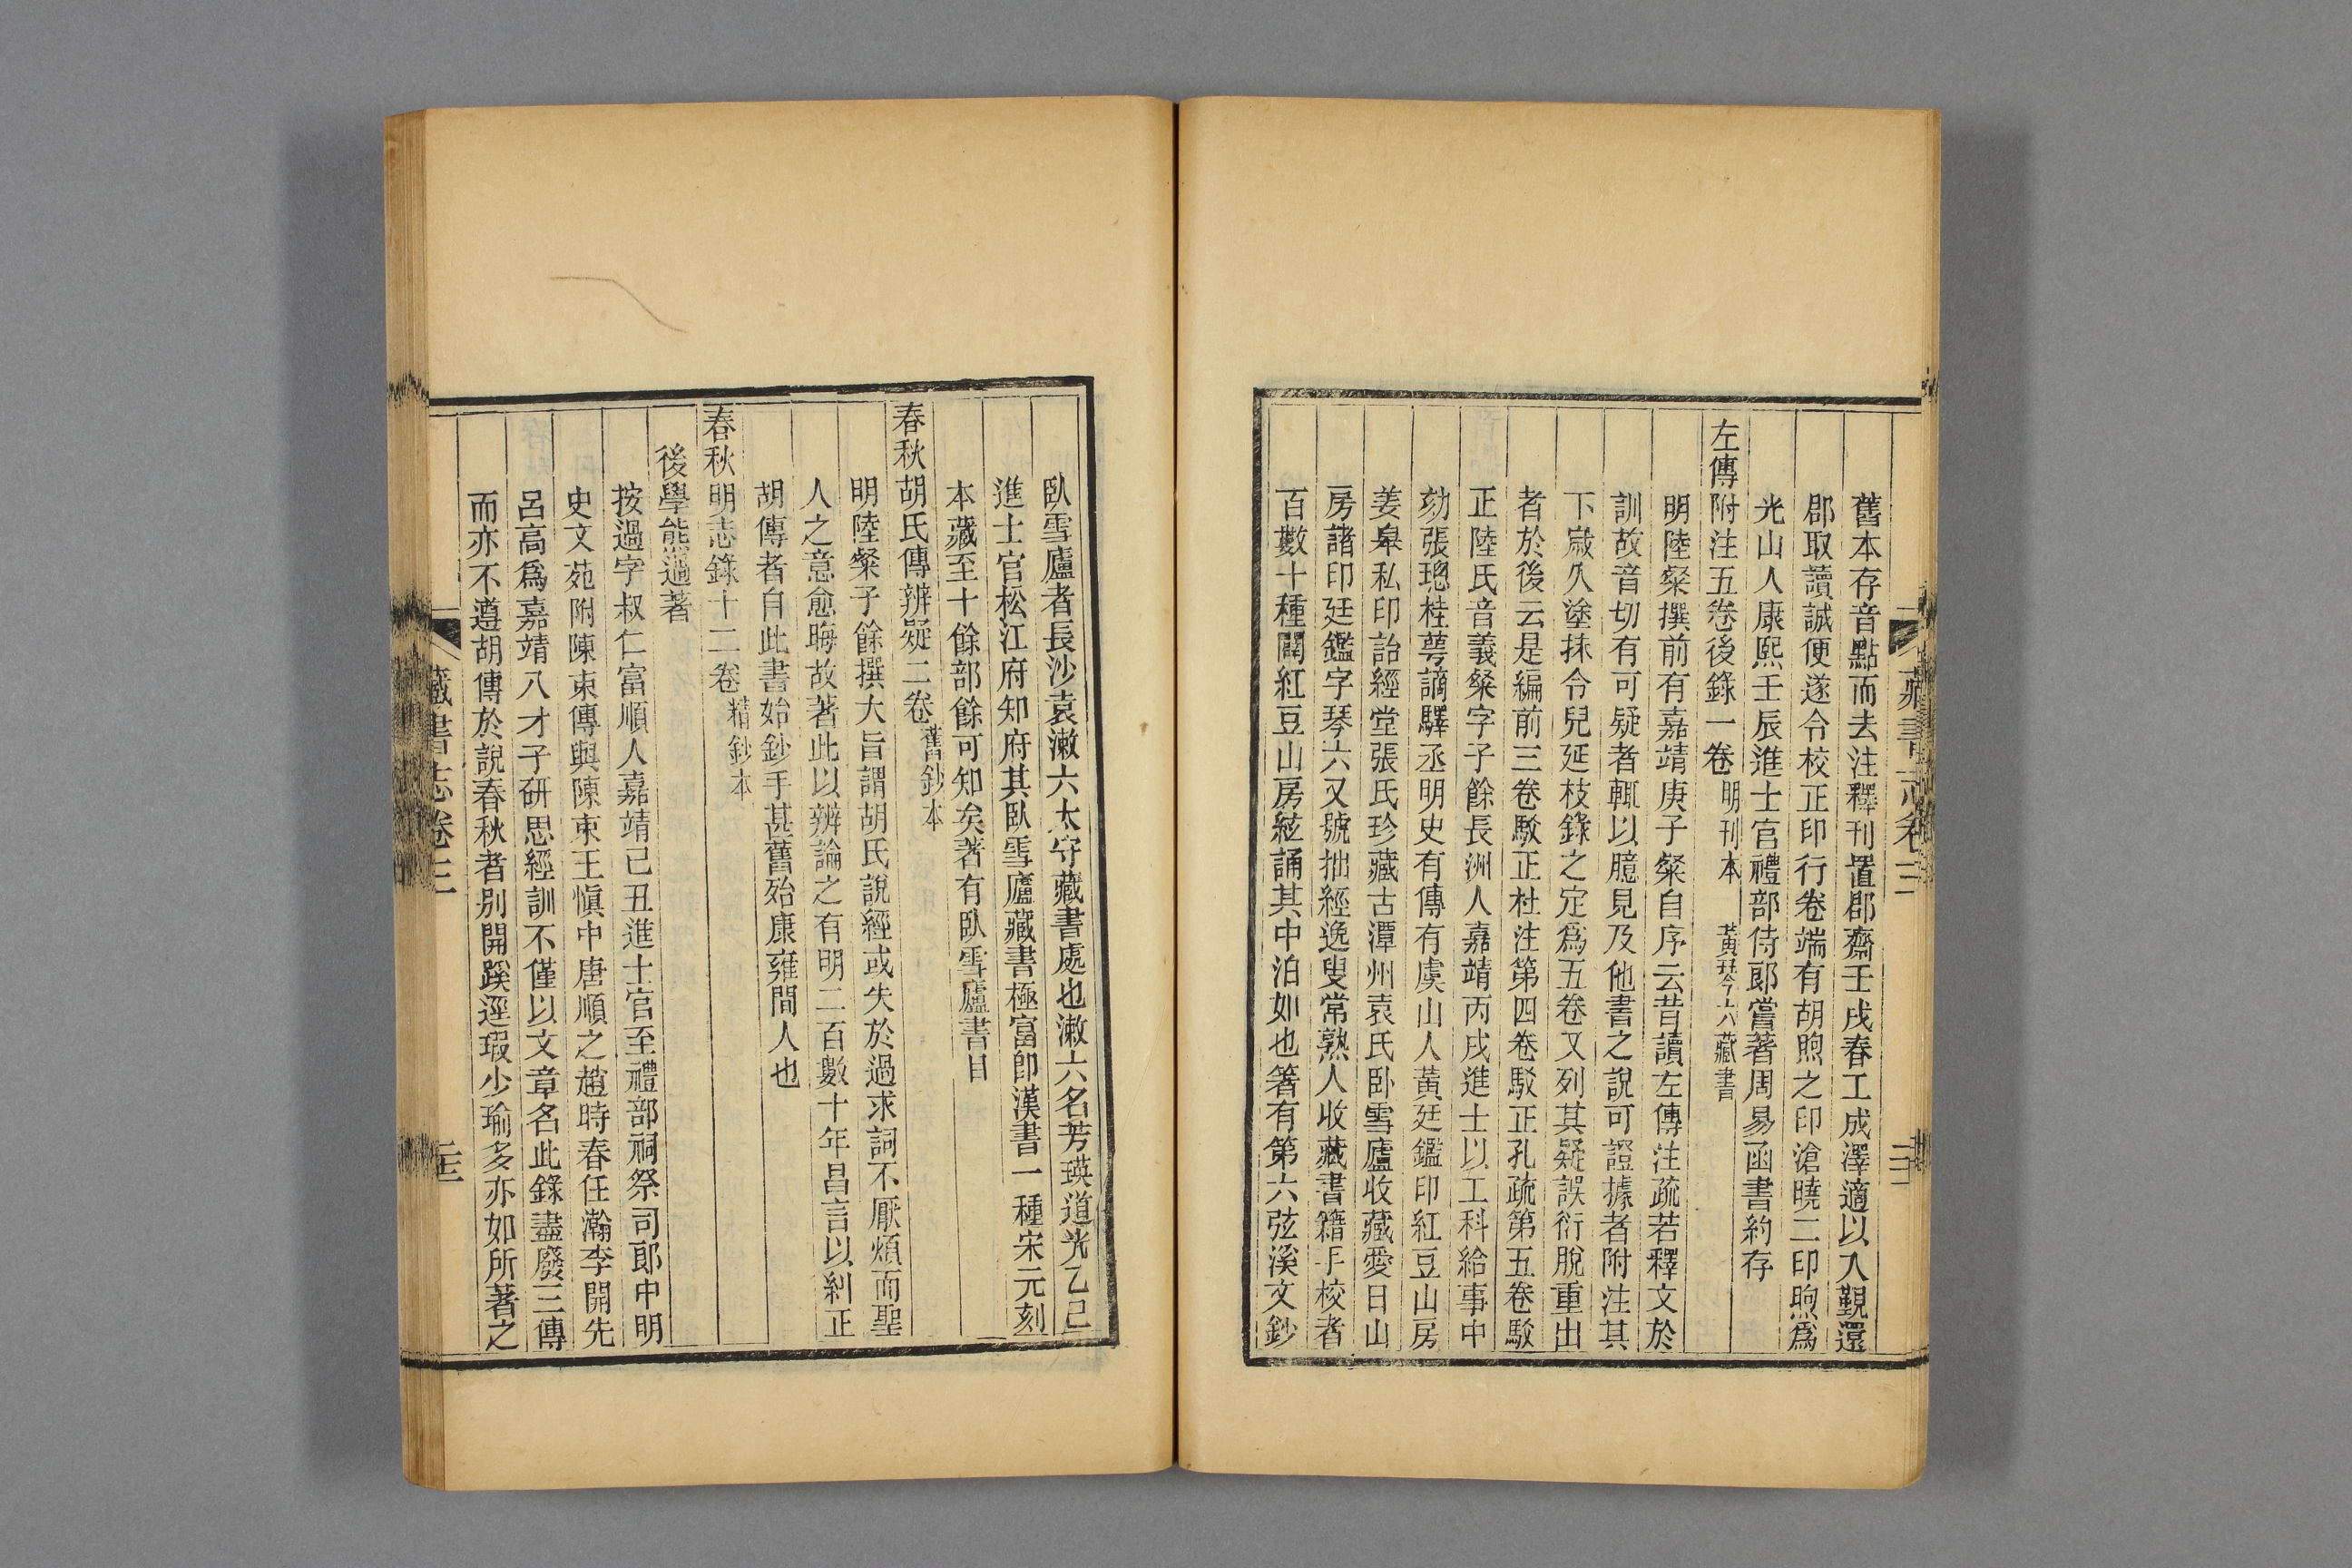 藏書志卷三
舊本存音點而去注釋刊置郡齋壬戌春工成澤適以入覲還
郡取讀誠便遂令校正印行卷端有胡煦之印滄曉二印煦爲
光山人康熙壬辰進士官禮部侍郎嘗著周易函書約存
左傳附注五卷後錄一卷 明刊本 黃琴六藏書
明陸粲撰前有嘉靖庚子粲自序云昔讀左傳注疏若釋文於
訓故音切有可疑者輒以臆見及他書之說可證據者附注其
下歲久塗抹令兒延枝錄之定爲五卷又列其疑誤衍脫重出
者於後云是編前三卷駁正杜注第四卷駁正孔疏第五卷駁
正陸氏音義粲字子餘長洲人嘉靖丙戌進士以工科給事中
劾張璁桂萼謫驛丞明史有傳有虞山人黃廷鑑印紅豆山房
姜皐私印詒經堂張氏珍藏古潭州袁氏卧雪廬收藏愛日山
房諸印廷鑑字琴六又號拙經逸叟常熟人收藏書籍手校者
百數十種闢紅豆山房絃誦其中泊如也箸有第六弦溪文鈔
臥雪廬者長沙袁漱六太守藏書處也漱六名芳瑛道光乙巳
進士官松江府知府其臥雪廬藏書極富卽漢書一種宋元刻
本藏至十餘部餘可知矣著有臥雪廬書目
春秋胡氏傳辨疑二卷 舊鈔本
明陸粲子餘撰大旨謂胡氏說經或失於過求詞不厭煩而聖
人之意愈晦故著此以辨論之有明二百數十年昌言以糾正
胡傳者自此書始鈔手甚舊殆康雍間人也
春秋明志錄十二卷 精鈔本
後學熊過著
按過字叔仁富順人嘉靖己丑進士官至禮部祠祭司郎中明
史文苑附陳束傳與陳束王愼中唐順之趙時春任瀚李開先
呂高爲嘉靖八才子研思經訓不僅以文章名此錄盡廢三傳
而亦不遵胡傳於說春秋者別開蹊逕瑕少瑜多亦如所著之
藏書志卷三